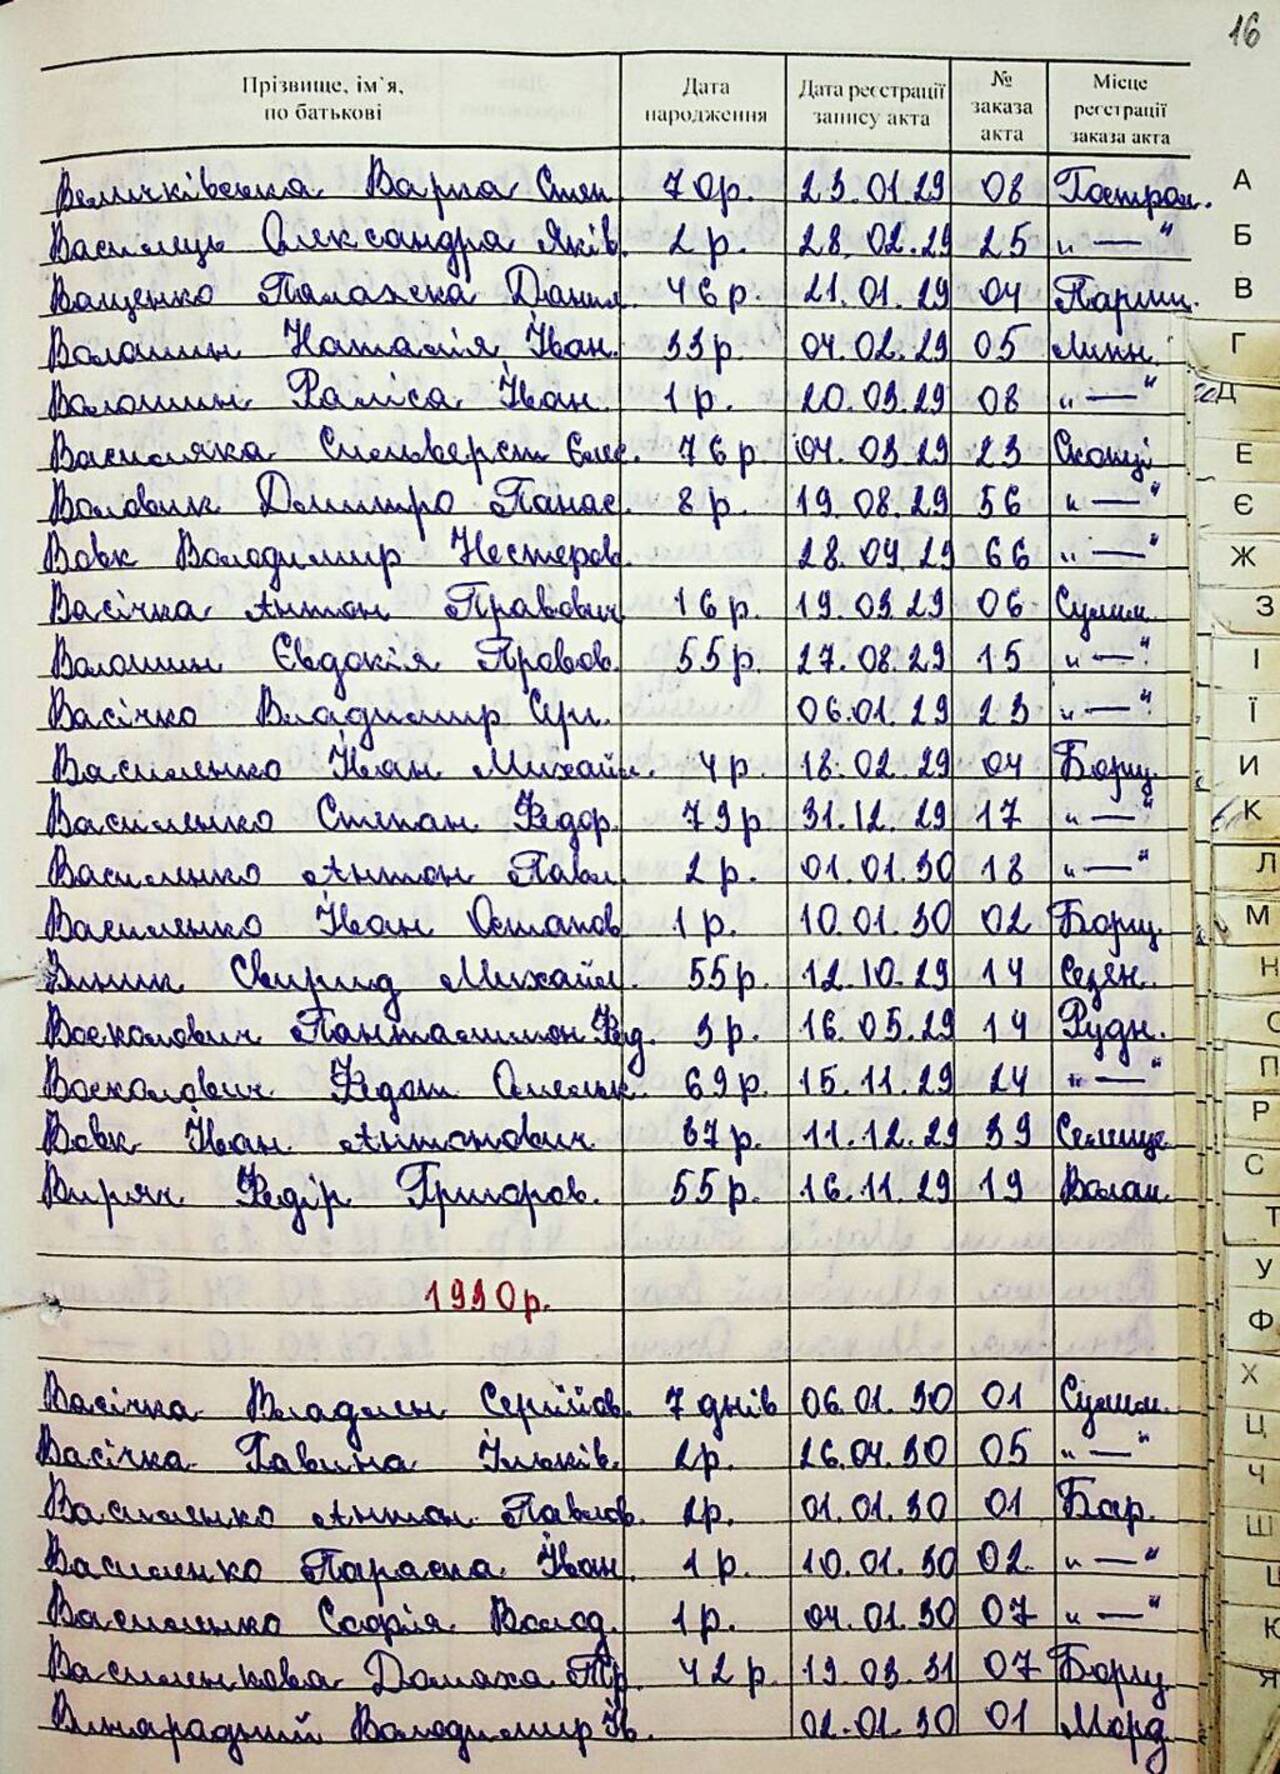 16
Прізвище, ім`я, по батькові Дата народження Дата реєстрації запису акта № заказа акта Місце реєстрації заказа акта
Величківська Варка Степ 70р. 23.01.29 08 Гостром.
Василець Олександра Яків. 2 р. 28.02.29 25 „—“
Ващенко Палажка Данил. 46 р. 21.01.29 04 Парищ.
Волошин Наталія Іван. 33 р. 04.02.29 05 Липн.
Волошин Раїса Іван. 1 р. 20.03.29 08 „—“
Василяка Сильверст Єлис. 76 р. 04.03.29 23 Скопці
Воловик Дмитро Панас. 8 р. 19.08.29 56 „—“
Вовк Володимир Нестеров. 28.09.29 66 „—“
Васічка Антон Правович 16 р. 19.03.29 06 Сулим.
Волошин Євдокія Провов. 55 р. 27.08.29 15 „—“
Васічко Владимир Сер. 06.01.29 23 „—“
Василенко Іван Михайл. 4 р. 18.02.29 04 Борщ.
Василенко Степан Федор. 79 р 31.12.29 17 „—“
Василенко Антон Павл. 2 р. 01.01.30 18 „—“
Василенко Іван Остапов 1 р. 10.01.30 02 Борщ.
Виник Свирид Михайл. 55 р. 12.10.29 14 Сезен.
Восколович Панталимон Фед. 3 р. 16.05.29 14 Рудн.
Восколович Федот Омельк. 69 р. 15.11.29 24 „—“
Вовк Іван Антонович 67 р. 11.12.29 39 Селище
Виряч Федір Григоров. 55 р. 16.11.29 19 Волош.
1930р.
Васічка Владлен Сергійов. 7 днів 06.01.30 01 Сулим.
Васічка Гавина Ільків. 2р. 26.04.30 05 „—“
Василенко Антон Павлов. 2р. 01.01.30 01 Бор.
Василенко Параска Іван. 1 р. 10.01.30 02 „—“
Василенко Софія Волод. 1 р. 04.01.30 07 „—“
Василенкова Домаха Пр. 42 р. 19.03.31 07 Борщ.
Винарадний Володимир Ів. 02.01.30 01 Морд.
А
Б
В
Г
Д
Е
Є
Ж
З
І
Ї
И
К
Л
М
Н
П
Р
С
Т
У
Ф
Х
Ц
Ч
Ш
Я